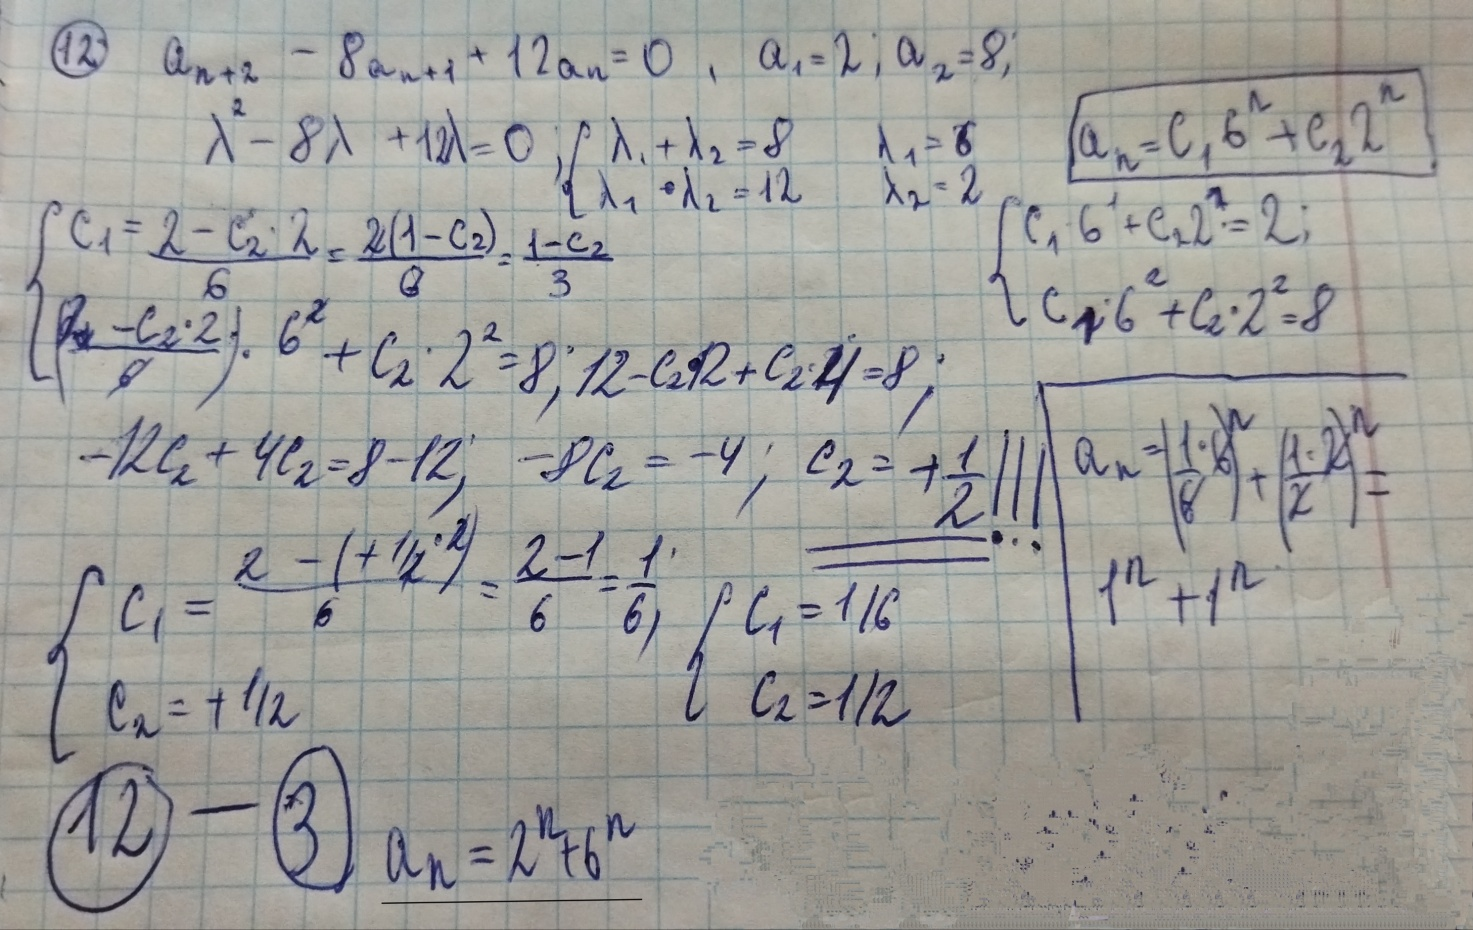 12) aₙ₊₂ - 8aₙ₊₁ + 12aₙ = 0, a₁ = 2; a₂ = 8;
λ² - 8λ + 12λ = 0; { λ₁ + λ₂ = 8 λ₁ = 6
λ₁ · λ₂ = 12 λ₂ = 2
aₙ = C₁6ⁿ + C₂2ⁿ
{ C₁·6¹ + C₂2¹ = 2;
C₁·6² + C₂·2² = 8
{ C₁ = (2 - C₂·2)/6 = 2(1 - C₂)/6 = (1 - C₂)/3
((2 - C₂·2)/6)·6² + C₂·2² = 8; 12 - C₂12 + C₂·4 = 8;
-12C₂ + 4C₂ = 8 - 12; -8C₂ = -4; C₂ = +1/2 !!!
{ C₁ = (2 - (+1/2·2))/6 = (2 - 1)/6 = 1/6;
C₂ = +1/2
{ C₁ = 1/6
C₂ = 1/2
aₙ = (1/6·6)ⁿ + (1/2·2)ⁿ =
1ⁿ + 1ⁿ
12 - 3 aₙ = 2ⁿ + 6ⁿ